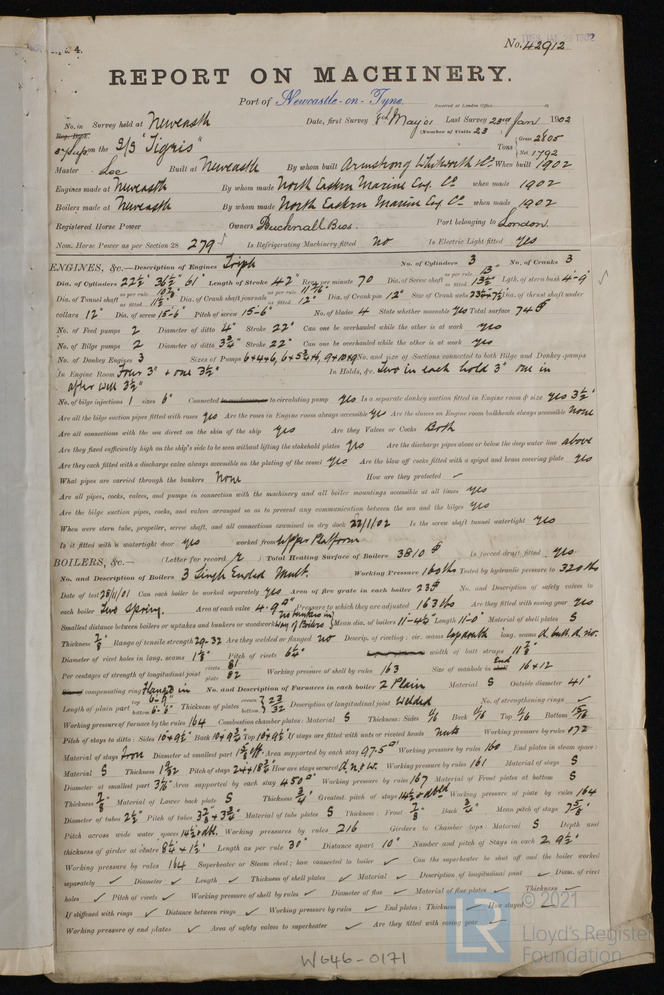 No. 4.
No. 42912
TUES. JAN. 28 1902
REPORT ON MACHINERY.
Port of Newcastle-on-Tyne
Received at London Office
No. in Survey held at Newcastle Date, first Survey 8th May 01 Last Survey 23rd Jan 1902
Reg. Book. (Number of Visits 23)
on the S/S "Tigris" Tons Gross 2805 Net 1792
Master Lee Built at Newcastle By whom built Armstrong Whitworth & Co When built 1902
Engines made at Newcastle By whom made North Eastern Marine Eng. Co when made 1902
Boilers made at Newcastle By whom made North Eastern Marine Eng Co when made 1902
Registered Horse Power Owners Bucknall Bros. Port belonging to London
Nom. Horse Power as per Section 28 279 Is Refrigerating Machinery fitted no Is Electric Light fitted yes
ENGINES, &c.—Description of Engines Triple No. of Cylinders 3 No. of Cranks 3
Dia. of Cylinders 22½" 36½" 61" Length of Stroke 42" Revs. per minute 70 Dia. of Screw shaft as per rule 13" as fitted 13½" Lgth. of stern bush 4-9"
Dia. of Tunnel shaft as fitted 11½" Dia. of Crank shaft journals as fitted 12" Dia. of Crank pin 12" Size of Crank webs Dia. of thrust shaft under
collars 12" Dia. of screw 15-6" Pitch of screw 15-6" No. of blades 4 State whether moveable yes Total surface 74
No. of Feed pumps 2 Diameter of ditto 4" Stroke 22" Can one be overhauled while the other is at work yes
No. of Bilge pumps 2 Diameter of ditto 3¾" Stroke 22" Can one be overhauled while the other is at work yes
No. of Donkey Engines 3 Sizes of Pumps No. and size of Suctions connected to both Bilge and Donkey pumps
In Engine Room Four 3" + one 3½" In Holds, &c. Two in each hold 3" one in
after well 3½"
No. of bilge injections 1 sizes 6" Connected to circulating pump yes Is a separate donkey suction fitted in Engine room & size yes 3½"
Are all the bilge suction pipes fitted with roses yes Are the roses in Engine room always accessible yes Are the sluices on Engine room bulkheads always accessible none
Are all connections with the sea direct on the skin of the ship yes Are they Valves or Cocks Both
Are they fixed sufficiently high on the ship's side to be seen without lifting the stokehold plates yes Are the discharge pipes above or below the deep water line above
Are they each fitted with a discharge valve always accessible on the plating of the vessel yes Are the blow off cocks fitted with a spigot and brass covering plate yes
What pipes are carried through the bunkers none How are they protected
Are all pipes, cocks, valves, and pumps in connection with the machinery and all boiler mountings accessible at all times yes
Are the bilge suction pipes, cocks, and valves arranged so as to prevent any communication between the sea and the bilges yes
When were stern tube, propeller, screw shaft, and all connections examined in dry dock 22/1/02 Is the screw shaft tunnel watertight yes
Is it fitted with a watertight door yes worked from Upper Platform
BOILERS, &c.— (Letter for record r) Total Heating Surface of Boilers 3810 Is forced draft fitted yes
No. and Description of Boilers 3 Single Ended Mult. Working Pressure 160 lbs Tested by hydraulic pressure to 320 lbs
Date of test 28/11/01 Can each boiler be worked separately yes Area of fire grate in each boiler No. and Description of safety valves to
each boiler Two Spring. Area of each valve 4.9 Pressure to which they are adjusted 163 lbs Are they fitted with easing gear yes
Smallest distance between boilers or uptakes and bunkers or woodwork no bunkers in way of Boilers Mean dia. of boilers 11-4½ Length 11-0" Material of shell plates S
Thickness ⅞" Range of tensile strength 29-32 Are they welded or flanged no Descrip. of riveting: cir. seams lap double long. seams
Diameter of rivet holes in long. seams Pitch of rivets 6¼" width of butt straps
Per centages of strength of longitudinal joint rivets 81 plate 82 Working pressure of shell by rules 163 Size of manhole in End 16 x 12
compensating ring Flanged in No. and Description of Furnaces in each boiler 2 Plain Material S Outside diameter 41"
Length of plain part Thickness of plates Description of longitudinal joint welded No. of strengthening rings
Working pressure of furnace by the rules 164 Combustion chamber plates: Material S Thickness: Sides Back Top Bottom
Pitch of stays to ditto: Sides Back Top If stays are fitted with nuts or riveted heads nuts Working pressure by rules 172
Material of stays Iron Diameter at smallest part Area supported by each stay 97.5 Working pressure by rules 160 End plates in steam space:
Material S Thickness Pitch of stays How are stays secured Working pressure by rules 161 Material of stays S
Diameter at smallest part Area supported by each stay 450 Working pressure by rules 167 Material of Front plates at bottom S
Thickness ⅞ Material of Lower back plate S Thickness ¾" Greatest pitch of stays Working pressure of plate by rules 164
Diameter of tubes 2½" Pitch of tubes Material of tube plates S Thickness: Front ⅞" Back ¾" Mean pitch of stays
Pitch across wide water spaces Working pressures by rules 216 Girders to Chamber tops: Material S Depth and
thickness of girder at centre Length as per rule 30" Distance apart 10" Number and pitch of Stays in each 2 9½"
Working pressure by rules 164 Superheater or Steam chest; how connected to boiler Can the superheater be shut off and the boiler worked
separately Diameter Length Thickness of shell plates Material Description of longitudinal joint Diam. of rivet
holes Pitch of rivets Working pressure of shell by rules Diameter of flue Material of flue plates Thickness
If stiffened with rings Distance between rings Working pressure by rules End plates: Thickness How stayed
Working pressure of end plates Area of safety valves to superheater Are they fitted with easing gear
© 2021
Lloyd's Register
Foundation
LR
W646-0171